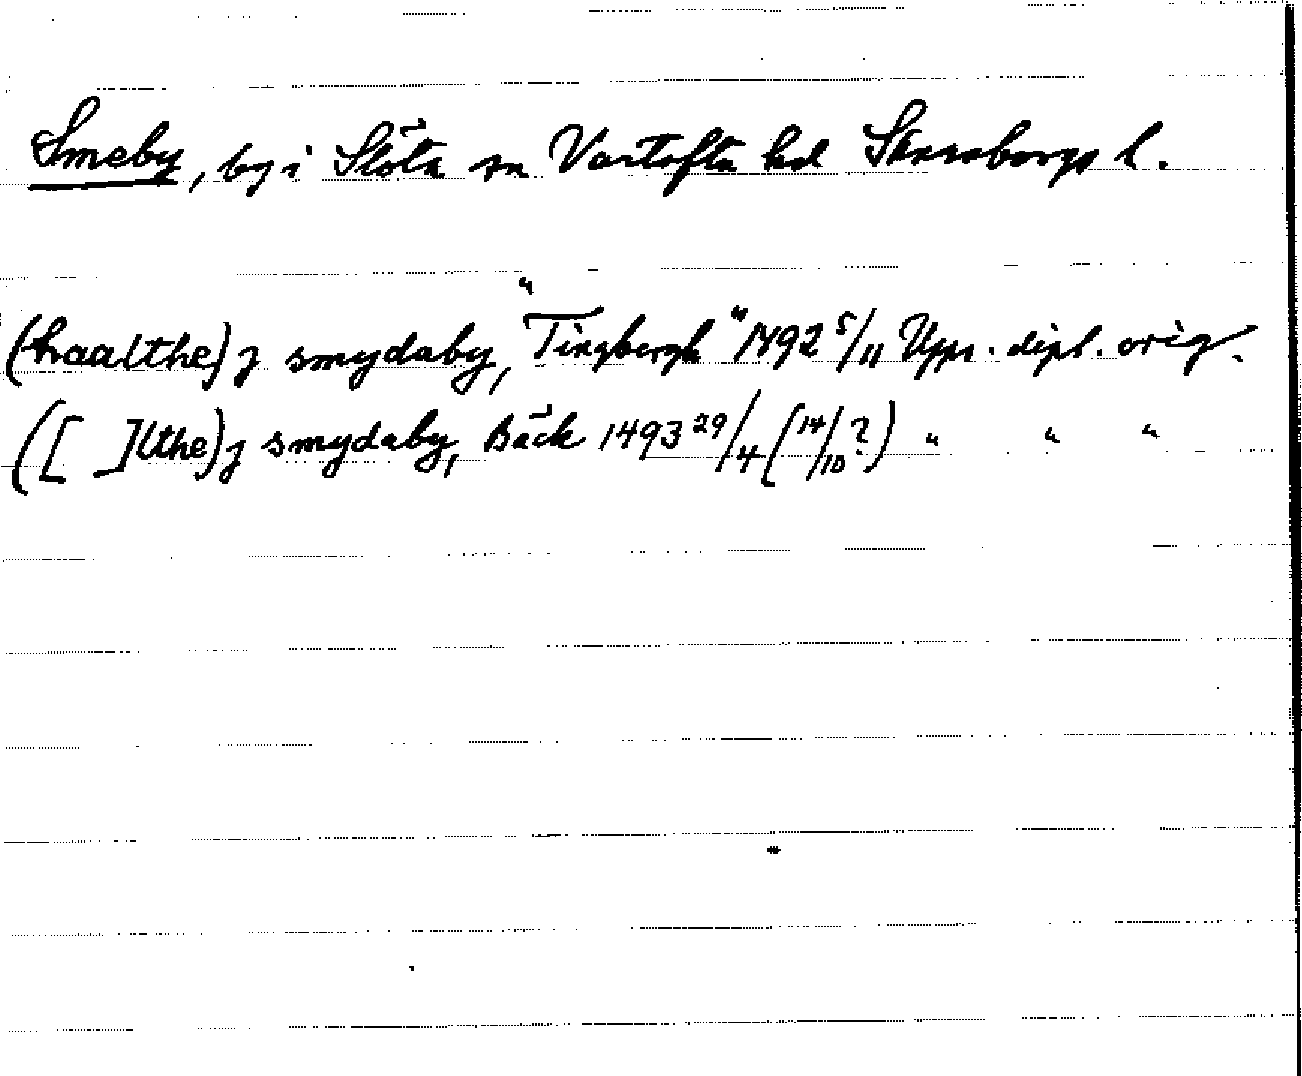 Smeby, by i Slöta sn Vartofta hd Skaraborgs l.
(haalthe) j smydaby, "Tingbergh" 1492 5/11 Upps. dipl. orig.
([ ]lthe) j smydaby, Bäck 1493 29/4 [14/10?) " " "